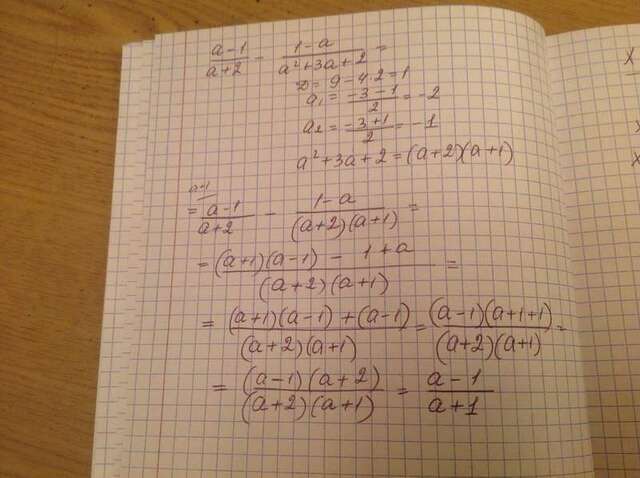 a-1/a+2 - 1-a/a²+3a+2 =
D = 9-4·2=1
a₁ = -3-1/2 = -2
a₂ = -3+1/2 = -1
a²+3a+2=(a+2)(a+1)
a+1
= a-1/a+2 - 1-a/(a+2)(a+1) =
= (a+1)(a-1) - 1+a/(a+2)(a+1) =
= (a+1)(a-1)+(a-1)/(a+2)(a+1) = (a-1)(a+1+1)/(a+2)(a+1) =
= (a-1)(a+2)/(a+2)(a+1) = a-1/a+1
x
x
x